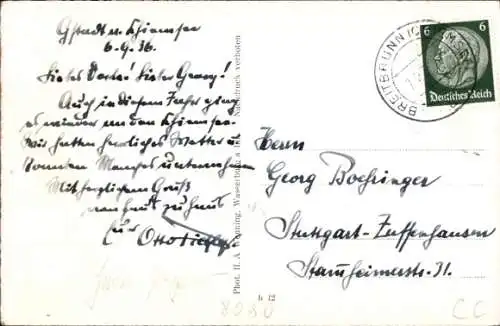 Gstadt a. Chiemsee
6.9.36.
Liebes Dorle! Lieber Georg!
Auch in diesem Jahr ging
es wieder an den Chiemsee.
Wir hatten herrliches Wetter u.
konnten Manches unternehmen
Mit herzlichem Gruß
von Haus zu Haus
Euer Otto
Phot. H. A. Wasserburg Nachdruck verboten
BREITBRUNN (CHIEMSEE)
6 6
Deutsches Reich
Herrn
Georg Boehringer
Stuttgart-Zuffenhausen
Stammheimerstr. 31.
h 12
CC